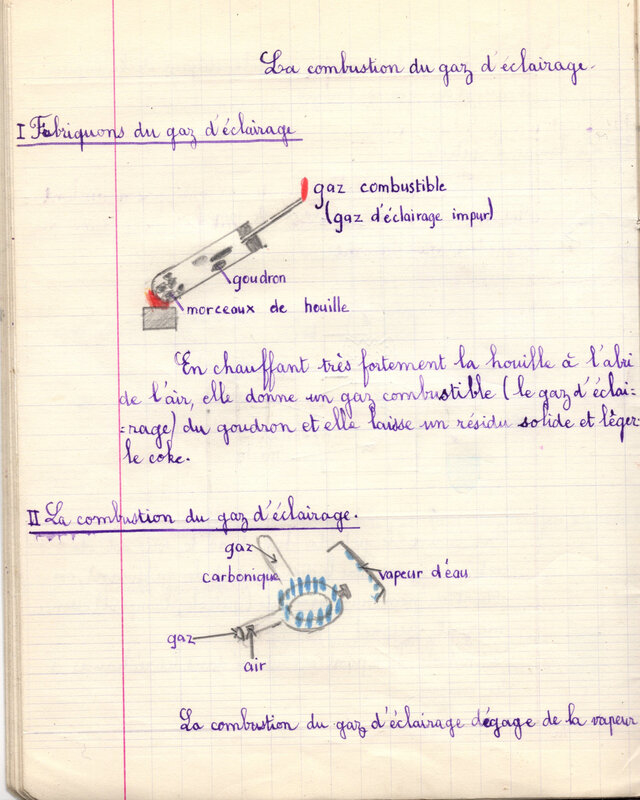 La combustion du gaz d'éclairage.
I Fabriquons du gaz d'éclairage
gaz combustible
(gaz d'éclairage impur)
goudron
morceaux de houille
En chauffant très fortement la houille à l'abri
de l'air, elle donne un gaz combustible (le gaz d'éclai=
=rage) du goudron et elle laisse un résidu solide et léger
le coke.
II La combustion du gaz d'éclairage.
gaz
carbonique
vapeur d'eau
gaz
air
La combustion du gaz d'éclairage dégage de la vapeur